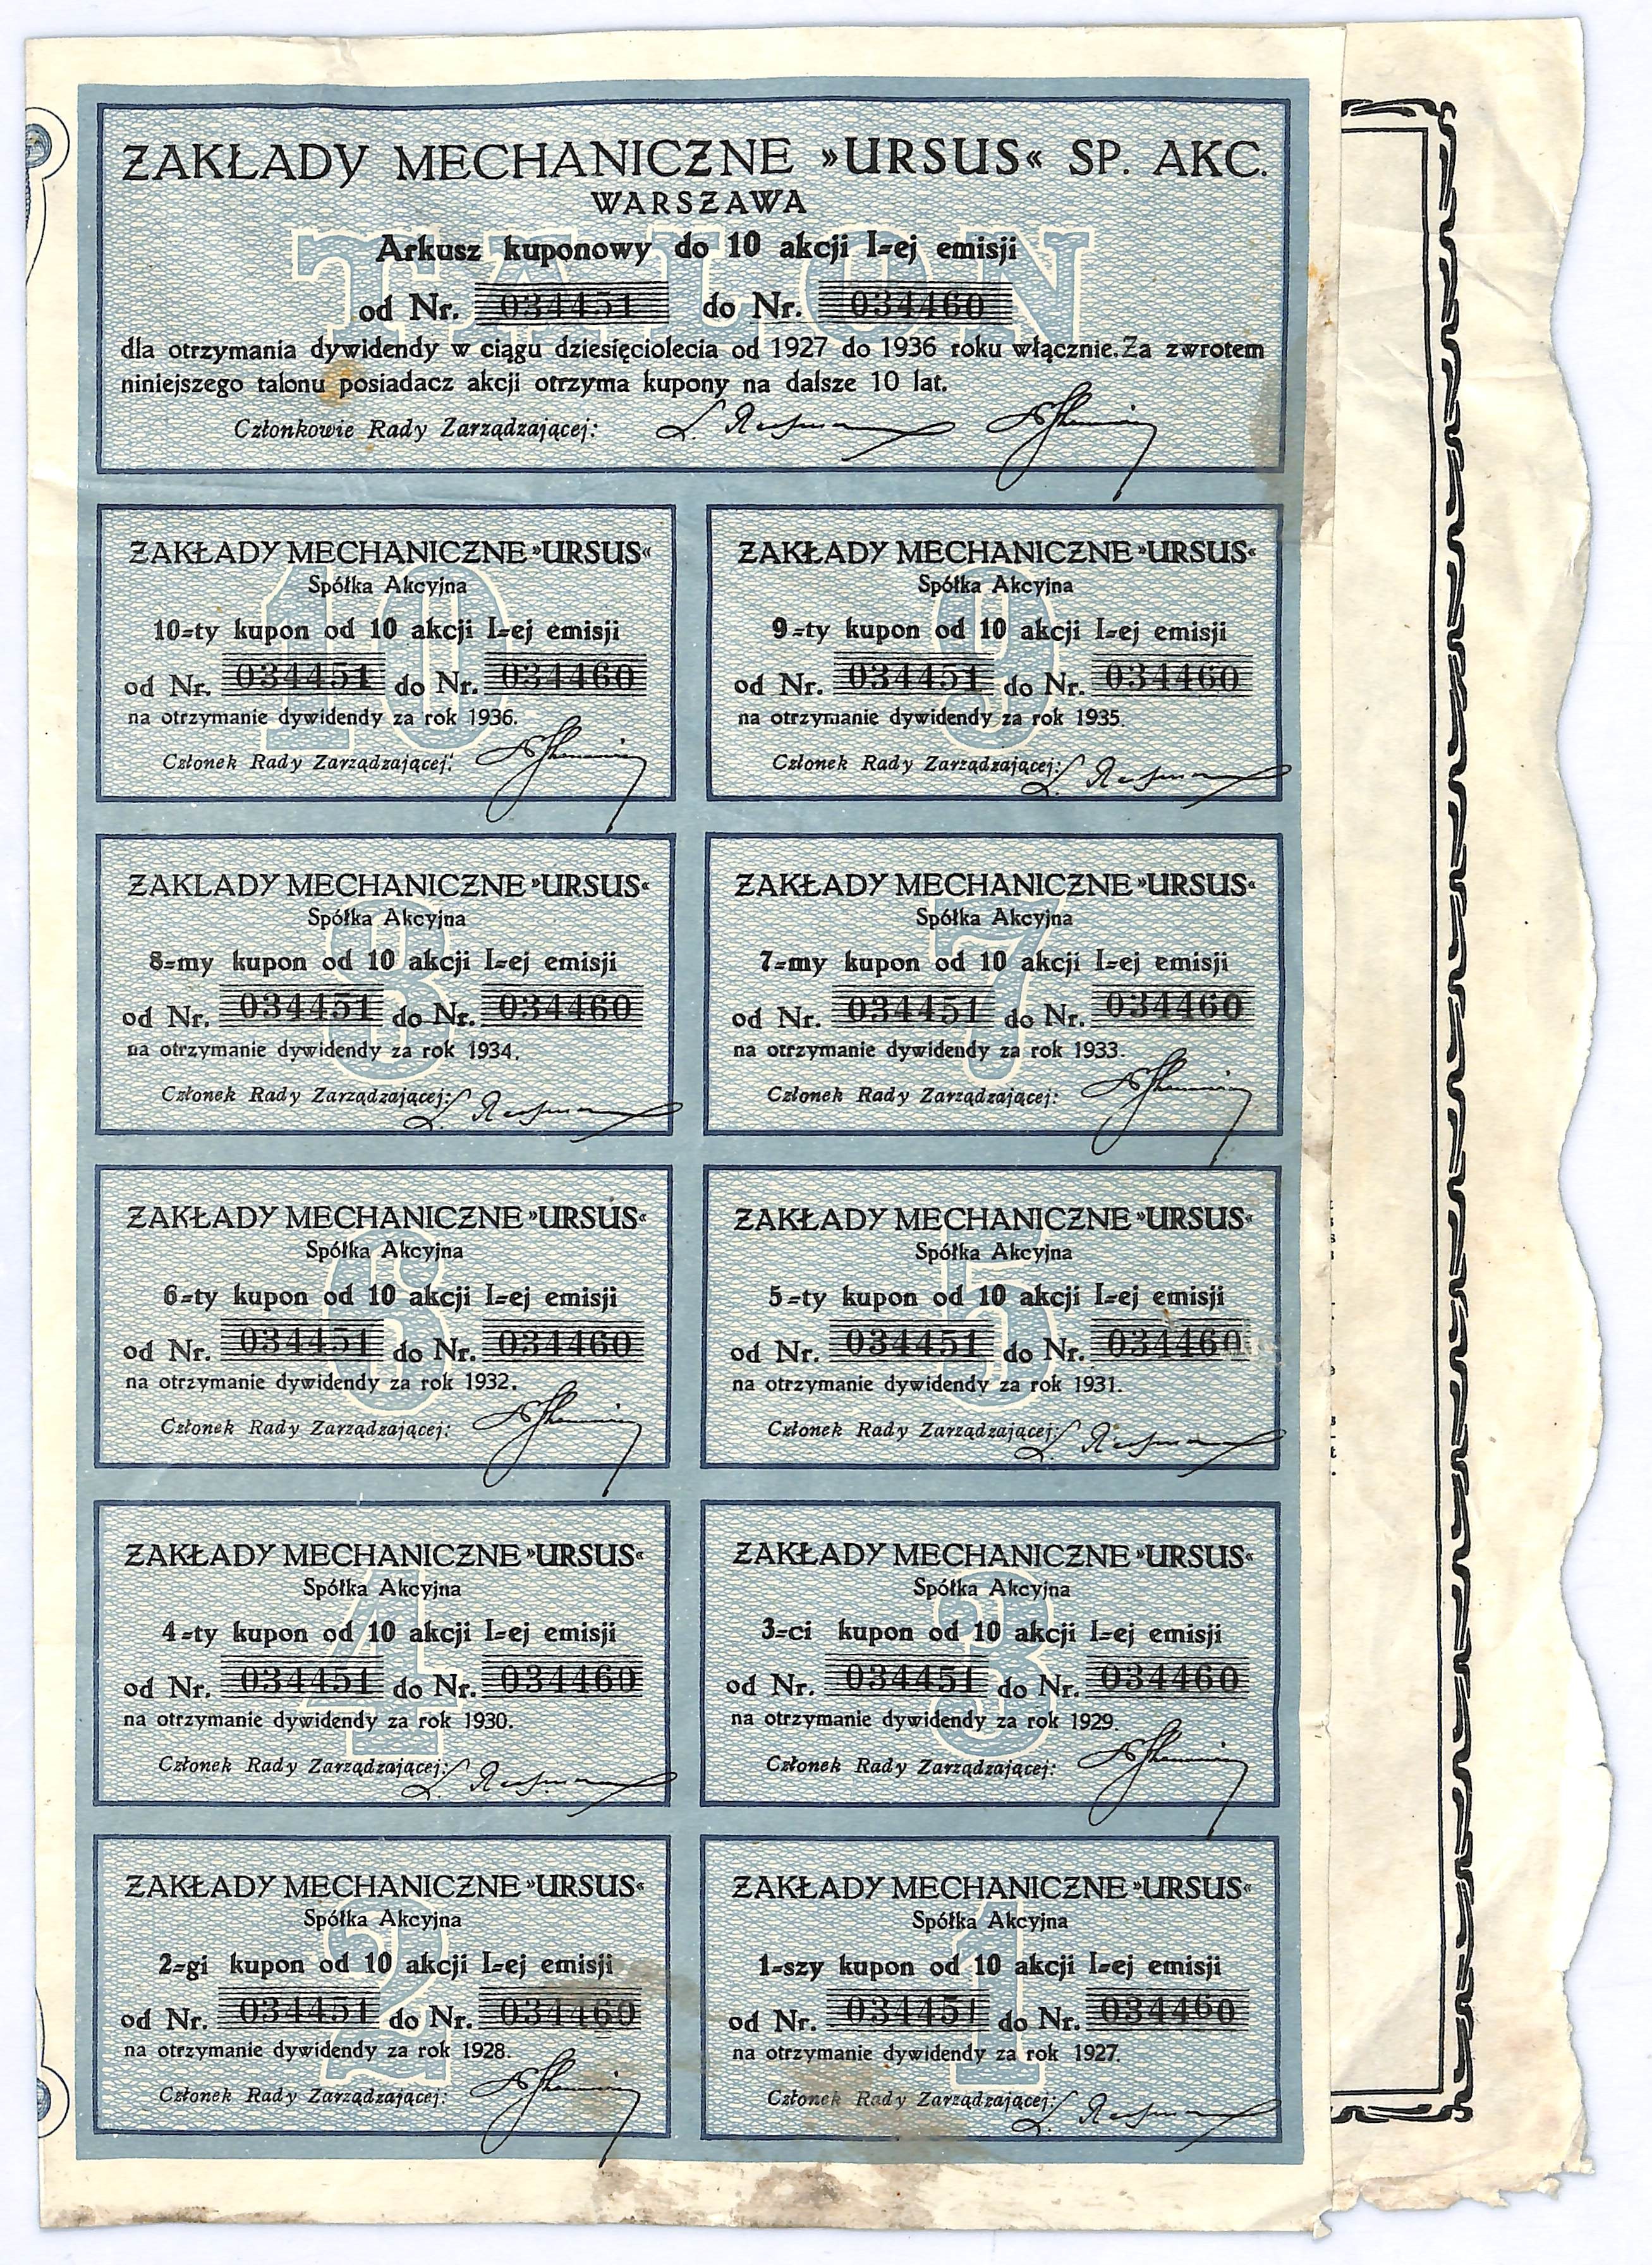 ZAKŁADY MECHANICZNE »URSUS« SP. AKC.
WARSZAWA
TALON
Arkusz kuponowy do 10 akcji I-ej emisji
od Nr. 034451 do Nr. 034460
dla otrzymania dywidendy w ciągu dziesięciolecia od 1927 do 1936 roku włącznie. Za zwrotem
niniejszego talonu posiadacz akcji otrzyma kupony na dalsze 10 lat.
Członkowie Rady Zarządzającej:
10
ZAKŁADY MECHANICZNE »URSUS«
Spółka Akcyjna
10-ty kupon od 10 akcji I-ej emisji
od Nr. 034451 do Nr. 034460
na otrzymanie dywidendy za rok 1936.
Członek Rady Zarządzającej:
9
ZAKŁADY MECHANICZNE »URSUS«
Spółka Akcyjna
9-ty kupon od 10 akcji I-ej emisji
od Nr. 034451 do Nr. 034460
na otrzymanie dywidendy za rok 1935.
Członek Rady Zarządzającej:
8
ZAKLADY MECHANICZNE »URSUS«
Spółka Akcyjna
8-my kupon od 10 akcji I-ej emisji
od Nr. 034451 do Nr. 034460
na otrzymanie dywidendy za rok 1934.
Członek Rady Zarządzającej:
7
ZAKŁADY MECHANICZNE »URSUS«
Spółka Akcyjna
7-my kupon od 10 akcji I-ej emisji
od Nr. 034451 do Nr. 034460
na otrzymanie dywidendy za rok 1933.
Członek Rady Zarządzającej:
6
ZAKŁADY MECHANICZNE »URSUS«
Spółka Akcyjna
6-ty kupon od 10 akcji I-ej emisji
od Nr. 034451 do Nr. 034460
na otrzymanie dywidendy za rok 1932.
Członek Rady Zarządzającej:
5
ZAKŁADY MECHANICZNE »URSUS«
Spółka Akcyjna
5-ty kupon od 10 akcji I-ej emisji
od Nr. 034451 do Nr. 034460
na otrzymanie dywidendy za rok 1931.
Członek Rady Zarządzającej:
4
ZAKŁADY MECHANICZNE »URSUS«
Spółka Akcyjna
4-ty kupon od 10 akcji I-ej emisji
od Nr. 034451 do Nr. 034460
na otrzymanie dywidendy za rok 1930.
Członek Rady Zarządzającej:
3
ZAKŁADY MECHANICZNE »URSUS«
Spółka Akcyjna
3-ci kupon od 10 akcji I-ej emisji
od Nr. 034451 do Nr. 034460
na otrzymanie dywidendy za rok 1929.
Członek Rady Zarządzającej:
2
ZAKŁADY MECHANICZNE »URSUS«
Spółka Akcyjna
2-gi kupon od 10 akcji I-ej emisji
od Nr. 034451 do Nr. 034460
na otrzymanie dywidendy za rok 1928.
Członek Rady Zarządzającej:
1
ZAKŁADY MECHANICZNE »URSUS«
Spółka Akcyjna
1-szy kupon od 10 akcji I-ej emisji
od Nr. 034451 do Nr. 034460
na otrzymanie dywidendy za rok 1927.
Członek Rady Zarządzającej: